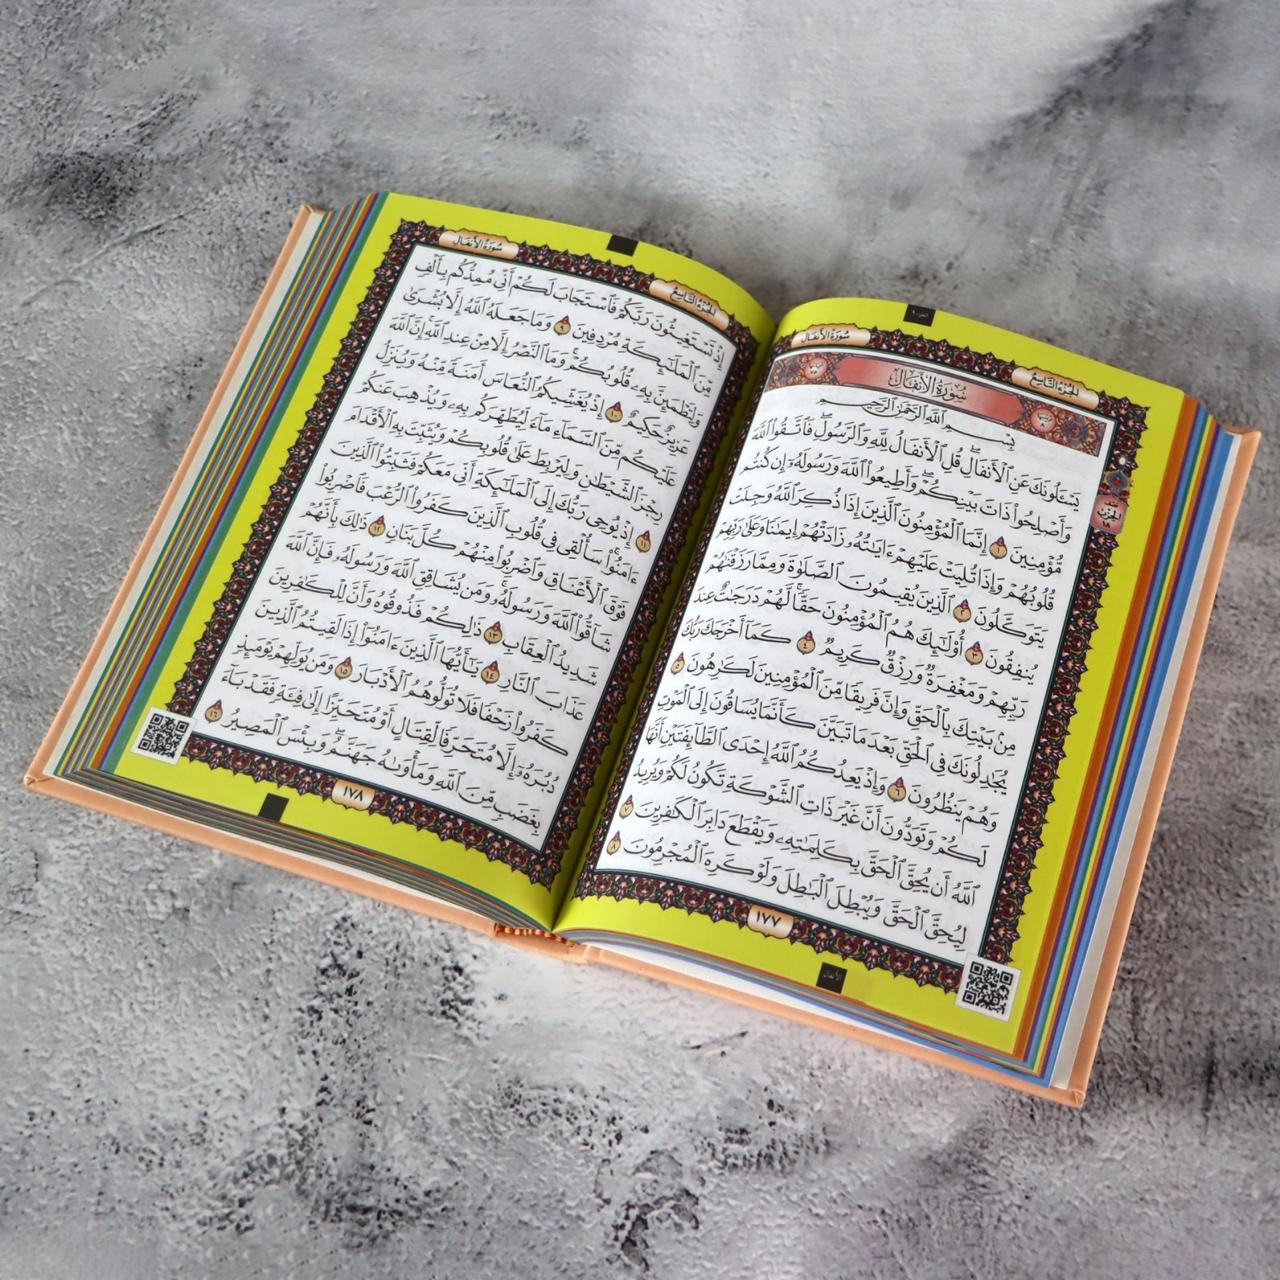 سُورَةُ الأَنفَال
الجُزْءُ التَّاسِعُ
سُورَةُ الأَنفَالِ
بِسْمِ ٱللَّهِ ٱلرَّحْمَٰنِ ٱلرَّحِيمِ
يَسْـَٔلُونَكَ عَنِ ٱلْأَنفَالِۖ قُلِ ٱلْأَنفَالُ لِلَّهِ وَٱلرَّسُولِۖ فَٱتَّقُوا۟ ٱللَّهَ
وَأَصْلِحُوا۟ ذَاتَ بَيْنِكُمْۖ وَأَطِيعُوا۟ ٱللَّهَ وَرَسُولَهُۥٓ إِن كُنتُم
مُّؤْمِنِينَ ١ إِنَّمَا ٱلْمُؤْمِنُونَ ٱلَّذِينَ إِذَا ذُكِرَ ٱللَّهُ وَجِلَتْ
قُلُوبُهُمْ وَإِذَا تُلِيَتْ عَلَيْهِمْ ءَايَٰتُهُۥ زَادَتْهُمْ إِيمَٰنًا وَعَلَىٰ رَبِّهِمْ
يَتَوَكَّلُونَ ٢ ٱلَّذِينَ يُقِيمُونَ ٱلصَّلَوٰةَ وَمِمَّا رَزَقْنَٰهُمْ
يُنفِقُونَ ٣ أُو۟لَٰٓئِكَ هُمُ ٱلْمُؤْمِنُونَ حَقًّاۚ لَّهُمْ دَرَجَٰتٌ عِندَ
رَبِّهِمْ وَمَغْفِرَةٌ وَرِزْقٌ كَرِيمٌ ٤ كَمَآ أَخْرَجَكَ رَبُّكَ
مِنۢ بَيْتِكَ بِٱلْحَقِّ وَإِنَّ فَرِيقًا مِّنَ ٱلْمُؤْمِنِينَ لَكَٰرِهُونَ ٥
يُجَٰدِلُونَكَ فِى ٱلْحَقِّ بَعْدَ مَا تَبَيَّنَ كَأَنَّمَا يُسَاقُونَ إِلَى ٱلْمَوْتِ
وَهُمْ يَنظُرُونَ ٦ وَإِذْ يَعِدُكُمُ ٱللَّهُ إِحْدَى ٱلطَّآئِفَتَيْنِ أَنَّهَا
لَكُمْ وَتَوَدُّونَ أَنَّ غَيْرَ ذَاتِ ٱلشَّوْكَةِ تَكُونُ لَكُمْ وَيُرِيدُ
ٱللَّهُ أَن يُحِقَّ ٱلْحَقَّ بِكَلِمَٰتِهِۦ وَيَقْطَعَ دَابِرَ ٱلْكَٰفِرِينَ ٧
لِيُحِقَّ ٱلْحَقَّ وَيُبْطِلَ ٱلْبَٰطِلَ وَلَوْ كَرِهَ ٱلْمُجْرِمُونَ ٨
١٧٧
الجُزْءُ التَّاسِعُ
سُورَةُ الأَنفَال
إِذْ تَسْتَغِيثُونَ رَبَّكُمْ فَٱسْتَجَابَ لَكُمْ أَنِّى مُمِدُّكُم بِأَلْفٍ
مِّنَ ٱلْمَلَٰٓئِكَةِ مُرْدِفِينَ ٩ وَمَا جَعَلَهُ ٱللَّهُ إِلَّا بُشْرَىٰ
وَلِتَطْمَئِنَّ بِهِۦ قُلُوبُكُمْۚ وَمَا ٱلنَّصْرُ إِلَّا مِنْ عِندِ ٱللَّهِۚ إِنَّ ٱللَّهَ
عَزِيزٌ حَكِيمٌ ١٠ إِذْ يُغَشِّيكُمُ ٱلنُّعَاسَ أَمَنَةً مِّنْهُ وَيُنَزِّلُ
عَلَيْكُم مِّنَ ٱلسَّمَآءِ مَآءً لِّيُطَهِّرَكُم بِهِۦ وَيُذْهِبَ عَنكُمْ
رِجْزَ ٱلشَّيْطَٰنِ وَلِيَرْبِطَ عَلَىٰ قُلُوبِكُمْ وَيُثَبِّتَ بِهِ ٱلْأَقْدَامَ
١١ إِذْ يُوحِى رَبُّكَ إِلَى ٱلْمَلَٰٓئِكَةِ أَنِّى مَعَكُمْ فَثَبِّتُوا۟ ٱلَّذِينَ
ءَامَنُوا۟ۚ سَأُلْقِى فِى قُلُوبِ ٱلَّذِينَ كَفَرُوا۟ ٱلرُّعْبَ فَٱضْرِبُوا۟
فَوْقَ ٱلْأَعْنَاقِ وَٱضْرِبُوا۟ مِنْهُمْ كُلَّ بَنَانٍ ١٢ ذَٰلِكَ بِأَنَّهُمْ
شَآقُّوا۟ ٱللَّهَ وَرَسُولَهُۥۚ وَمَن يُشَاقِقِ ٱللَّهَ وَرَسُولَهُۥ فَإِنَّ ٱللَّهَ
شَدِيدُ ٱلْعِقَابِ ١٣ ذَٰلِكُمْ فَذُوقُوهُ وَأَنَّ لِلْكَٰفِرِينَ
عَذَابَ ٱلنَّارِ ١٤ يَٰٓأَيُّهَا ٱلَّذِينَ ءَامَنُوٓا۟ إِذَا لَقِيتُمُ ٱلَّذِينَ
كَفَرُوا۟ زَحْفًا فَلَا تُوَلُّوهُمُ ٱلْأَدْبَارَ ١٥ وَمَن يُوَلِّهِمْ يَوْمَئِذٍ
دُبُرَهُۥٓ إِلَّا مُتَحَرِّفًا لِّقِتَالٍ أَوْ مُتَحَيِّزًا إِلَىٰ فِئَةٍ فَقَدْ بَآءَ
بِغَضَبٍ مِّنَ ٱللَّهِ وَمَأْوَىٰهُ جَهَنَّمُۖ وَبِئْسَ ٱلْمَصِيرُ ١٦
١٧٨